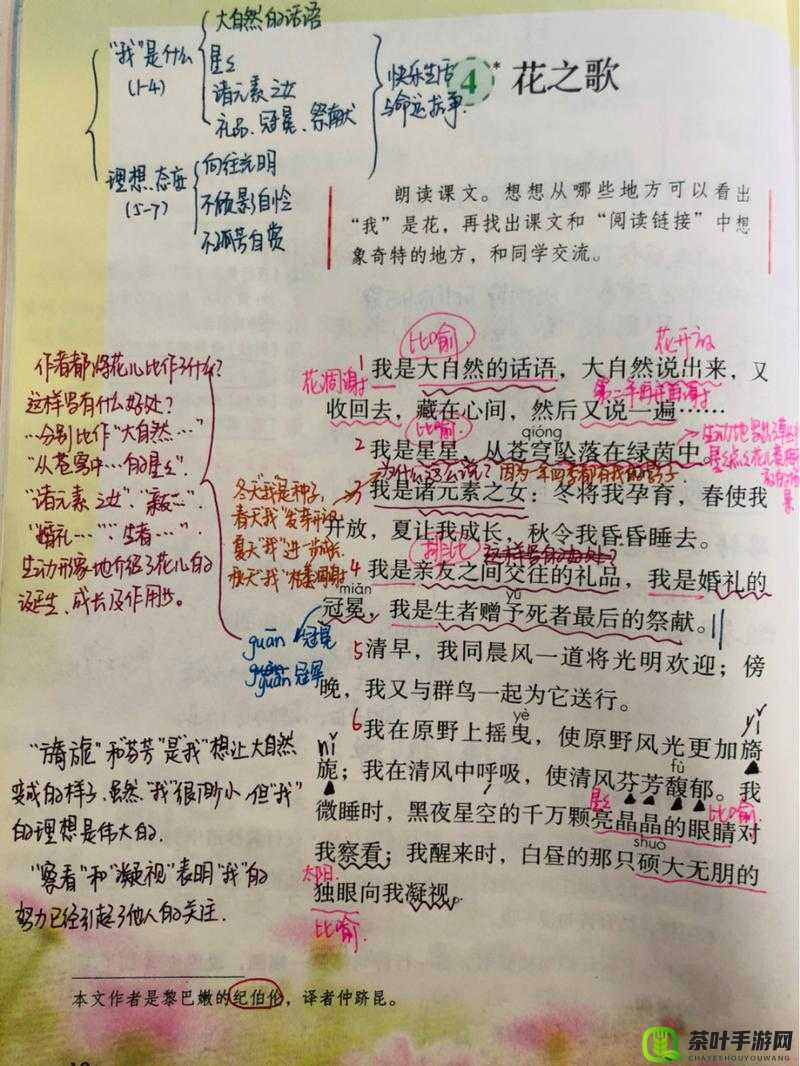 大自然的话语
"我"是什么
(1-4)
星星
诸元素之女
礼品、冠冕、祭献
快乐生活
与命运抗争.
理想、态度
(5-7)
向往光明
不顾影自怜
不孤芳自赏
4* 花之歌
朗读课文。想想从哪些地方可以看出
"我"是花，再找出课文和"阅读链接"中想
象奇特的地方，和同学交流。
比喻
花开放
花凋谢
1我是大自然的话语，大自然说出来，又
第二年再开再谢
收回去，藏在心间，然后又说一遍……
比喻
qióng
2我是星星，从苍穹坠落在绿茵中。
为什么这么说？因为一年四季都有我的影子.
3我是诸元素之女：冬将我孕育，春使我
开放，夏让我成长，秋令我昏昏睡去。
排比
这样写有何好处？
4我是亲友之间交往的礼品，我是婚礼的
miǎn
yǔ
冠冕，我是生者赠予死者最后的祭献。
5清早，我同晨风一道将光明欢迎；傍
晚，我又与群鸟一起为它送行。
yè
yǐ
6我在原野上摇曳，使原野风光更加旖
nǐ
fù
旎；我在清风中呼吸，使清风芬芳馥郁。我
星星
比喻
微睡时，黑夜星空的千万颗亮晶晶的眼睛对
shuò
我察看；我醒来时，白昼的那只硕大无朋的
太阳.
独眼向我凝视。
比喻
作者都将花儿比作了什么？
这样写有什么好处？
…分别比作"大自然…"
"从苍穹中…的星星"
"诸元素之女"、
"婚礼…"、"生者…"、
生动形象地介绍了花儿的
诞生、成长及作用等。
冬天"我"是种子，
春天"我"发芽开花
夏天"我"进一步成长
秋天"我"枯萎凋谢
guān 冠冕
guàn 冠军
"旖旎"和"芬芳"是"我"想让大自然
变成的样子，虽然"我"很渺小，但"我"
的理想是伟大的.
"察看"和"凝视"表明"我"的
努力已经引起了他人的关注.
本文作者是黎巴嫩的纪伯伦，译者仲跻昆。
茶叶手游网
CHAYESHOUYOUWANG